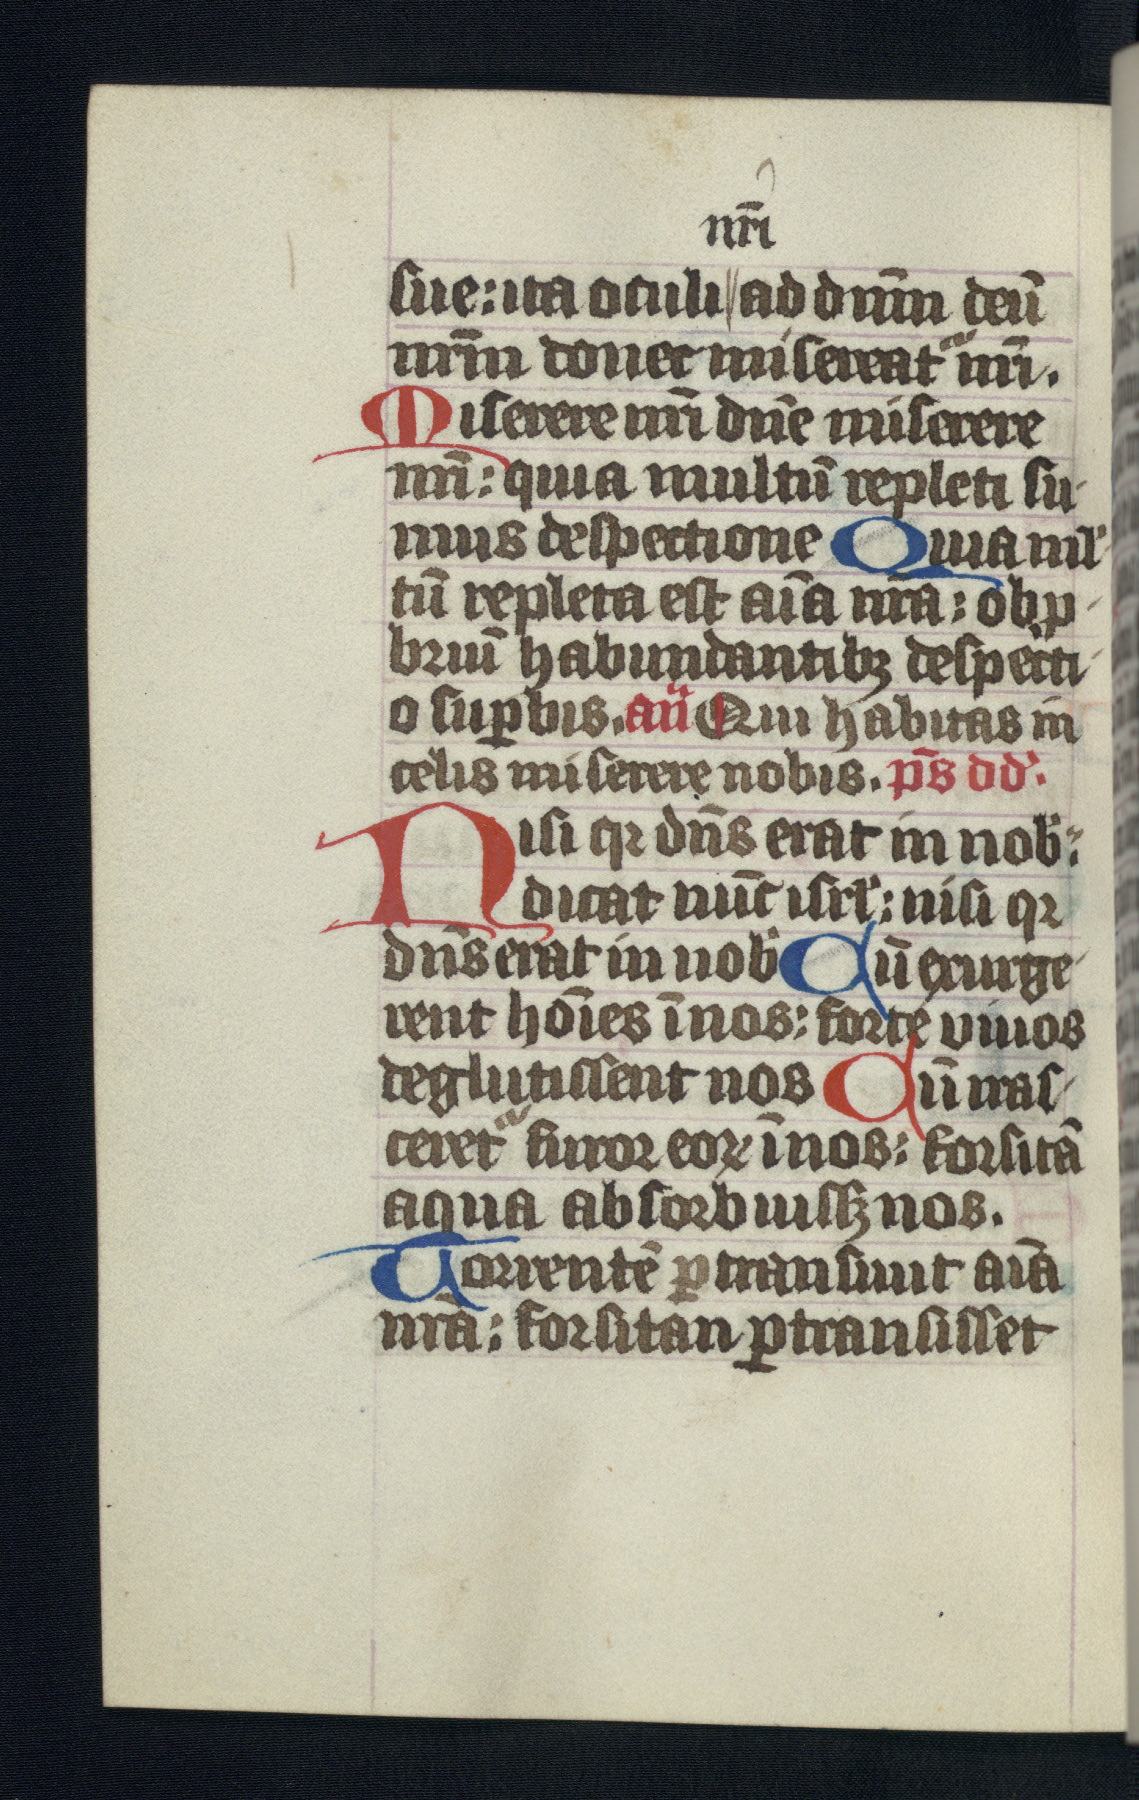 nr̄i
sue: ita oculi ad dn̄m deū
nr̄m donec misereat᷑ nr̄i.
Miserere nr̄i dn̄e miserere
nr̄i: quia multū repleti su-
mus despectione Quia ml̓-
tū repleta est aīa nr̄a: obp-
briū habundantibꝫ despecti-
o suꝑbis. an̄ Qui habitas in
celis miserere nobis. ps̄ dd̓.
Nisi qꝛ dn̄s erat in nob̓:
dicat nūc isrl̓: nisi qꝛ
dn̄s erat in nob̓ Cū exurge-
rent hōies ī nos: forte viuos
deglutissent nos Cū iras-
ceret᷑ furor eoꝝ ī nos: forsitā
aqua absorbuissꝫ nos.
Torrentē ꝑtransiuit aīa
nr̄a: forsitan ꝑtransisset